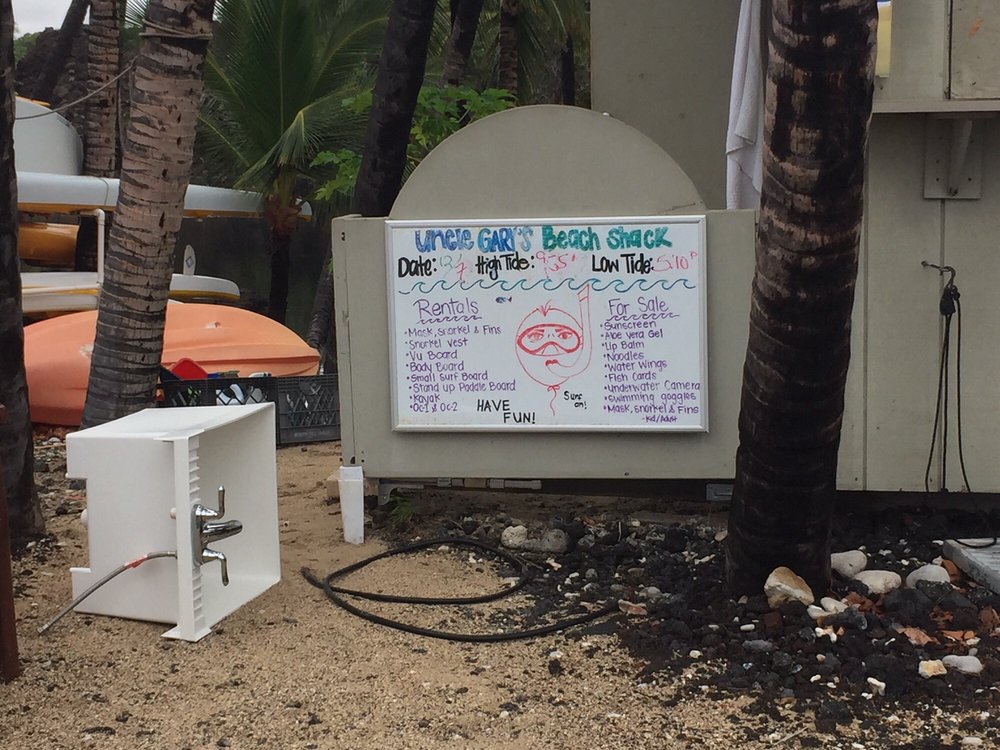 Uncle GARY'S Beach Shack
Date: 12/7 High Tide: 9:55a Low Tide: 5:10P
Rentals
•Mask, Snorkel & Fins
•Snorkel Vest
•Vu Board
•Body Board
•Small Surf Board
•Stand up Paddle Board
•Kayak
•OC-1 & OC-2
HAVE
FUN!
For Sale
•Sunscreen
•Aloe vera Gel
•Lip Balm
•Noodles
•Water Wings
•Fish Cards
•Underwater Camera
•Swimming goggles
•Mask, snorkel & Fins
-Kid/Adult